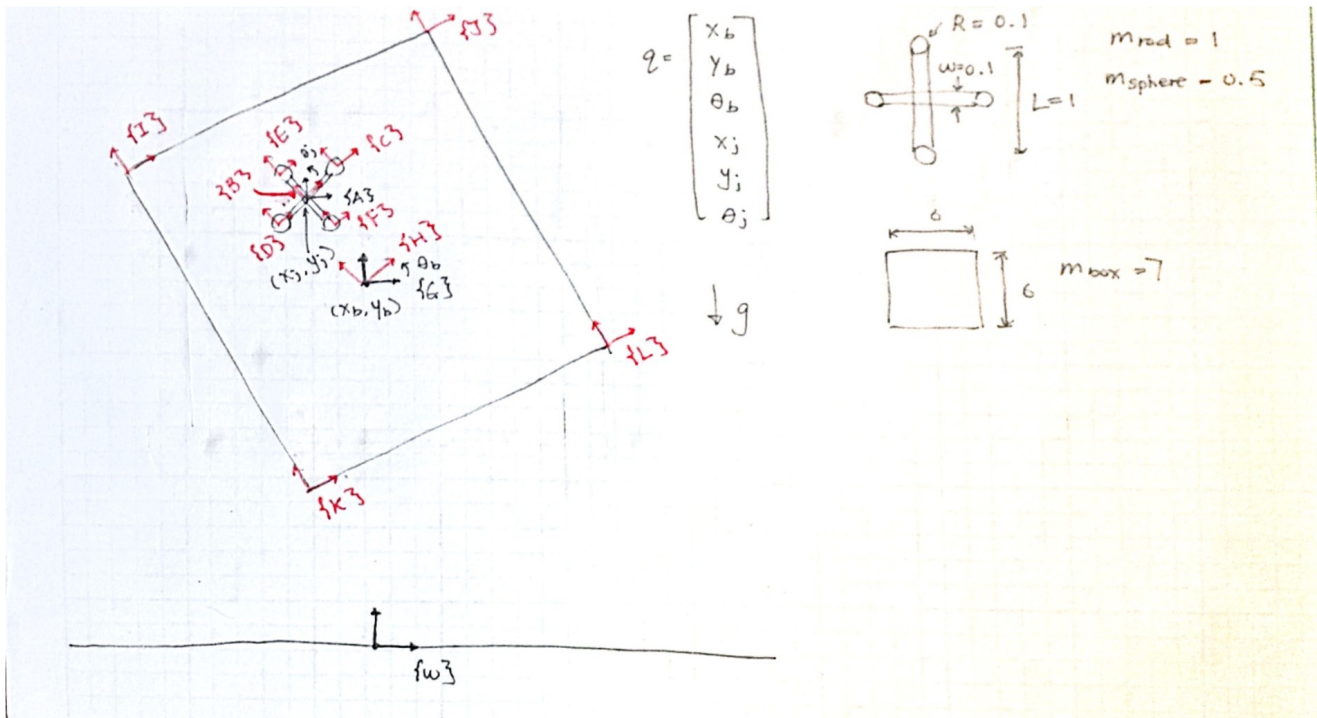 {J}
{I}
{E}
θj
{C}
{B}
{A}
{F}
{D}
(xj, yj)
{H}
θb
{G}
(xb, yb)
{L}
{K}
{w}
q =
xb
yb
θb
xj
yj
θj
g
R = 0.1
w=0.1
L=1
mrod = 1
msphere - 0.5
6
6
mbox = 7